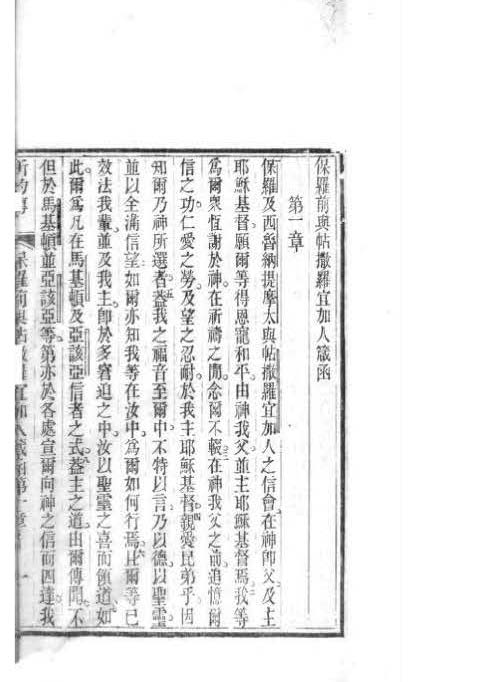 保羅前與帖撒羅宜加人箴函
第一章
保羅及西魯納提摩太與帖撒羅宜加人之信會在神即父及主
耶穌基督願爾等得恩寵和平由神我父並主耶穌基督焉我等
為爾眾恆謝於神在祈禱之間念爾不輟三在神我父之前追憶爾
信之功仁愛之勞及望之忍耐於我主耶穌基督四親愛昆弟乎因
知爾乃神所選者五蓋我之福音至爾中不特以言乃以德以聖靈
並以全滿信望如爾亦知我等在汝中為爾如何行焉且爾等已
效法我輩並及我主即於多窘迫之中汝以聖靈之喜而領道如
此爾為凡在馬基頓及亞該亞信者之式蓋主之道由爾傳聞不
但於馬基頓並亞該亞等第亦於各處宣爾向神之信而四達我
新約傳 保羅前與帖撒羅宜加人箴函第一章 一